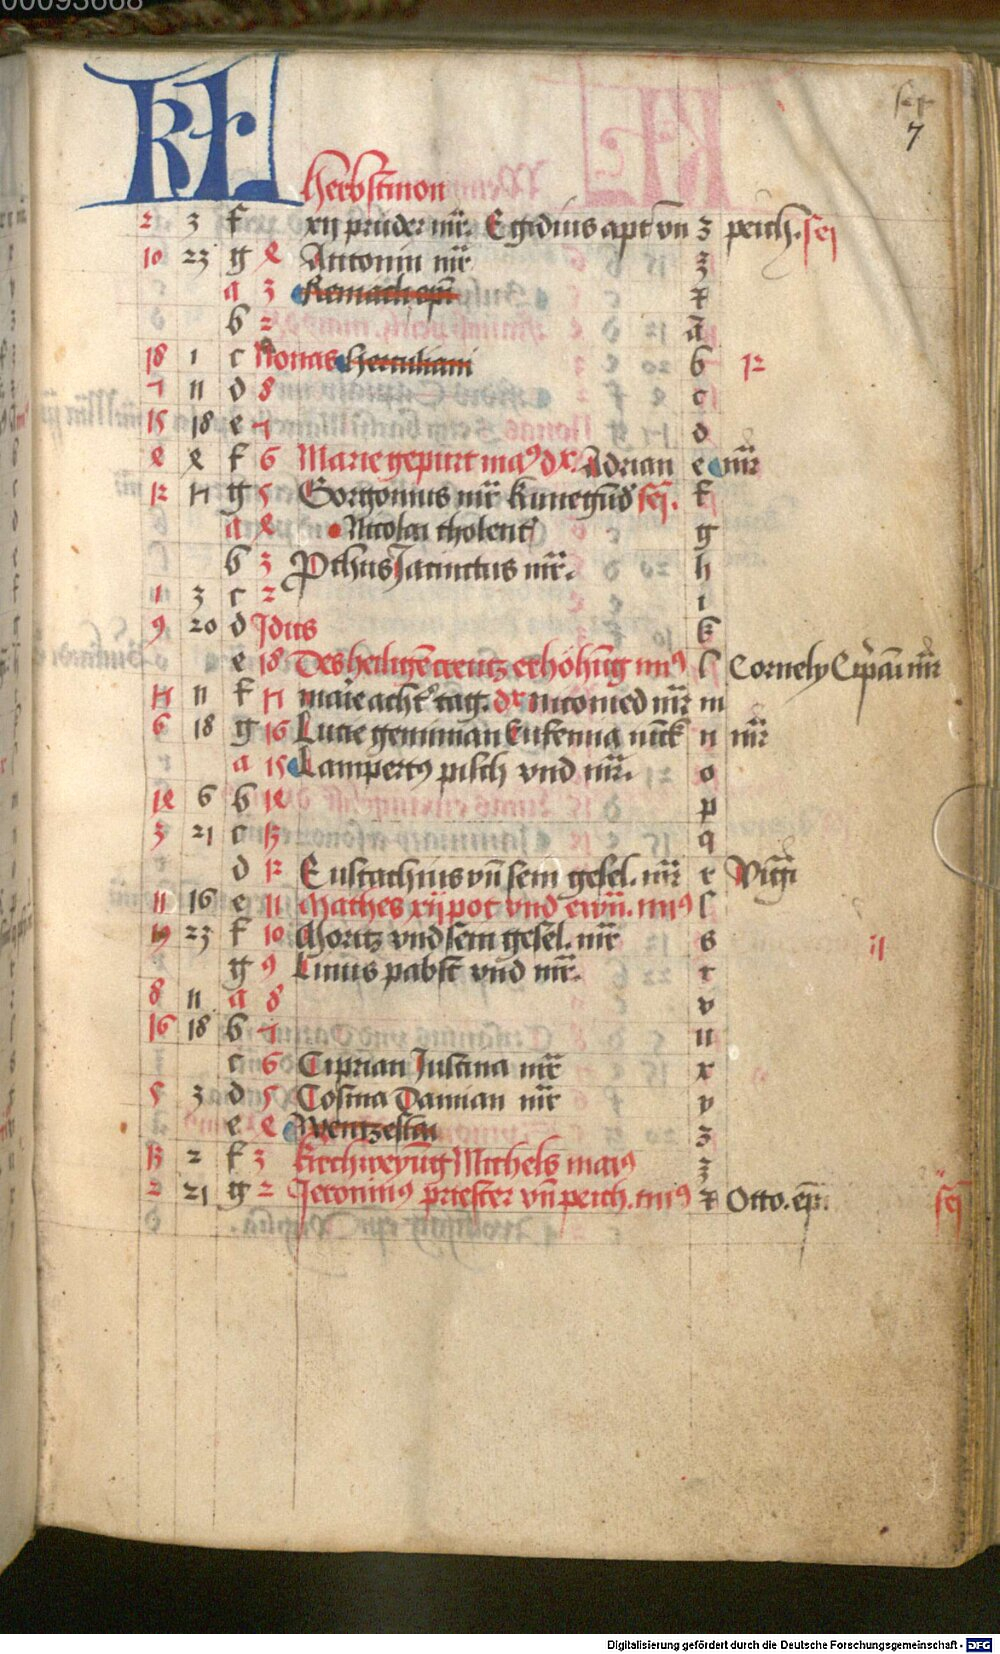 00093668
sep
7
KL
Herbstmon
2 3 f xij pruder mr. Egidius apt vn z peich. sej
10 23 g 4 Antonin mr z
a 3 Remach epi
b 2 a
18 1 c Nonas Herculiani b 12
7 11 d 8 c
15 18 e 7 d
4 4 f 6 Marie gepurt maĩ dx Adrian e mr
12 17 g 5 Gorgonius mr kunegund sej. f
a 4 Nicolai tholent g
b 3 Pthus Jacinctus mr. h
1 3 c 2 i
9 20 d Jdus k
e 18 Des heiligē creutz erhöhūg l Cornely Cipani mr
17 11 f 17 marie acht tag. dx nicomed mr m
6 18 g 16 Lucie geminian Eufemia n mr
a 15 Lampertus pisch vnd mr. o
14 6 b 14 p
3 21 c 13 q
d 12 Eustachius vn sein gesel. mr r Vigi
11 16 e 11 Mathes xij pot vnd ewn. s
19 23 f 10 Moritz vnd sein gesel. mr s
g 9 Linus pabst vnd mr. t
8 11 a 8 v
16 18 b 7 u
c 6 Ciprian Justina mr x
5 3 d 5 Cosma Damian mr y
e 4 Wentzeslai z
13 2 f 3 kirchweyūg Michels z
2 21 g 2 Jeronimus priester vn peich. Otto. ep. sej
Digitalisierung gefördert durch die Deutsche Forschungsgemeinschaft - DFG